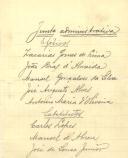 Junta administrativa
Efectivos
Zacarias Gomes de Lima
João Braz d'Almeida
Manuel Gonçalves da Silva
José Augusto Alves
Antonio Maria d'Oliveira
Substitutos
Carlos Lopes
Manuel d'
José de Sousa Junior